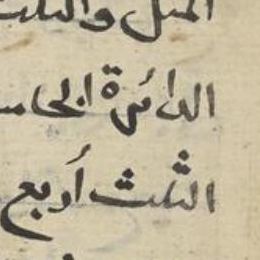 المثل والثلث
الدائرة الخامسة
الثلث أربع